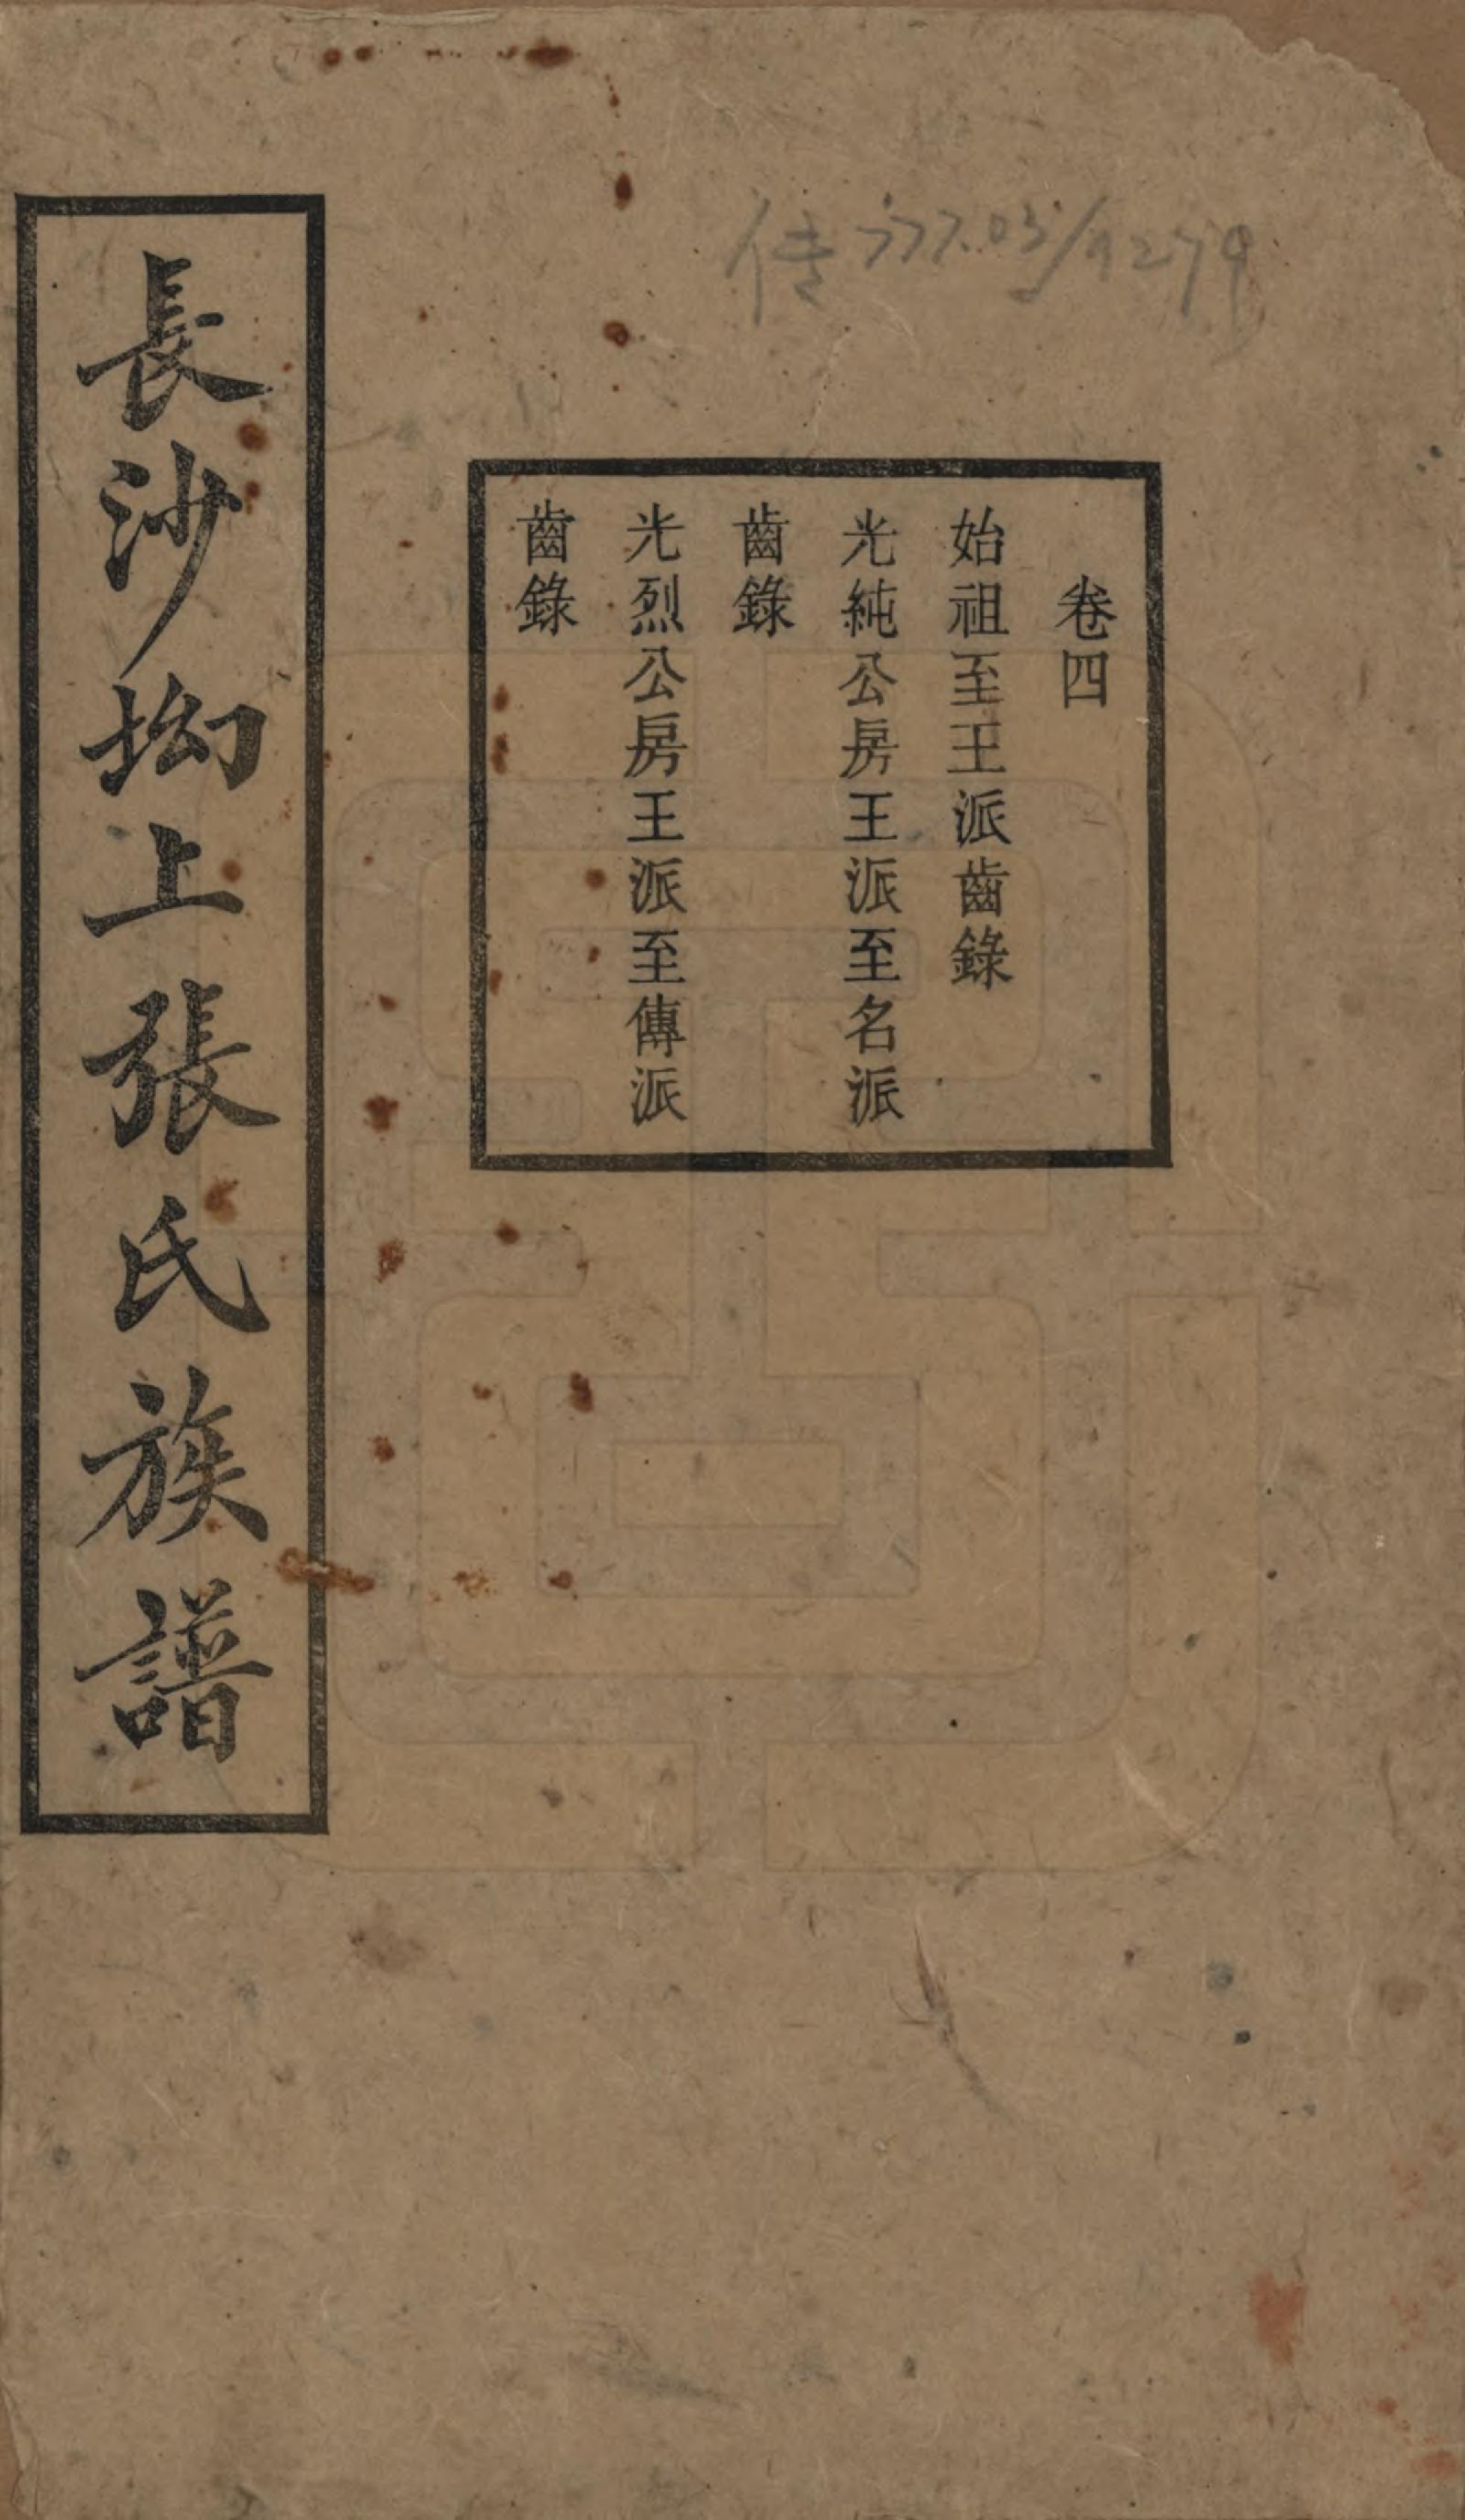 传777.05/9279
卷四
始祖至王派齒錄
光純公房王派至名派
齒錄
光烈公房王派至傳派
齒錄
長沙坳上張氏族譜